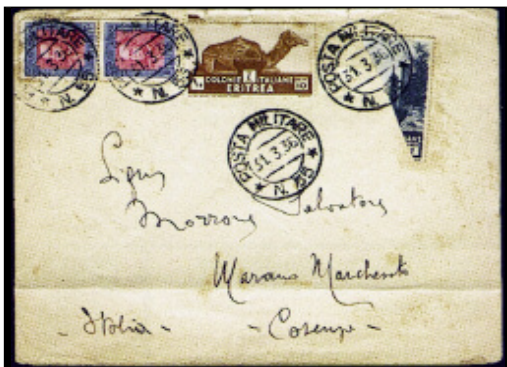 MILITARE
N. 55
COLONIE ITALIANE
ERITREA
POSTA MILITARE
31.3.36
N.
POSTA MILITARE
31.3.36
N. 55
Sigr
Morrone Salvatore
Marano Marchesato
- Italia - - Cosenza -